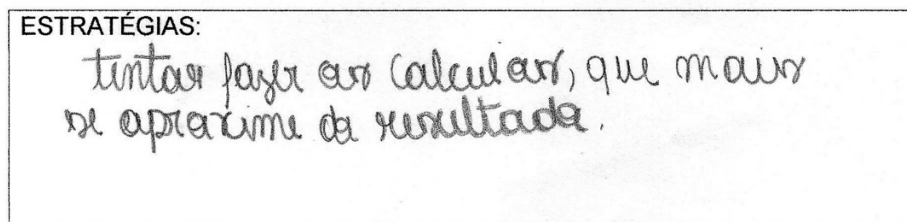 ESTRATÉGIAS:
tentar fazer os calculos, que mais
se aproxime do resultado.